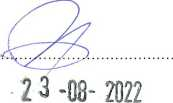 23 -08- 2022